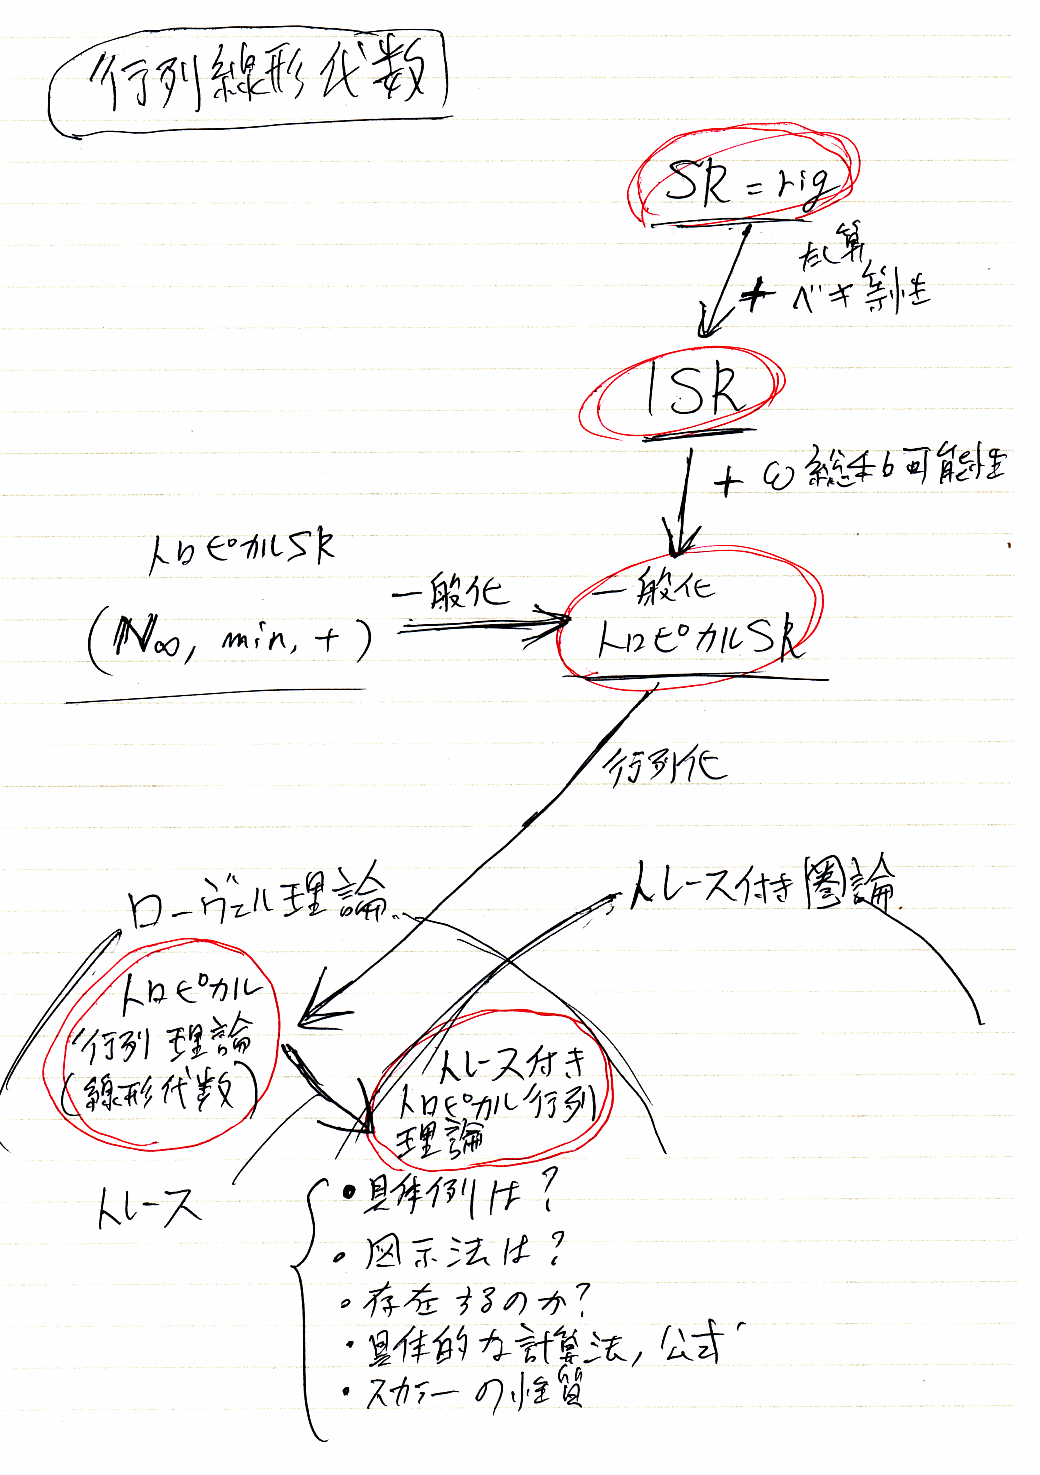 行列線形代数
SR = rig
たし算
+ ベキ等性
ISR
+ ω総和可能性
トロピカルSR
(N∞, min, +)
一般化
一般化
トロピカルSR
行列化
ローヴェル理論
トレース付き圏論
トロピカル
行列理論
(線形代数)
トレース付き
トロピカル行列
理論
トレース
・具体例は?
・図示法は?
・存在するのか?
・具体的な計算法, 公式
・スカラーの性質